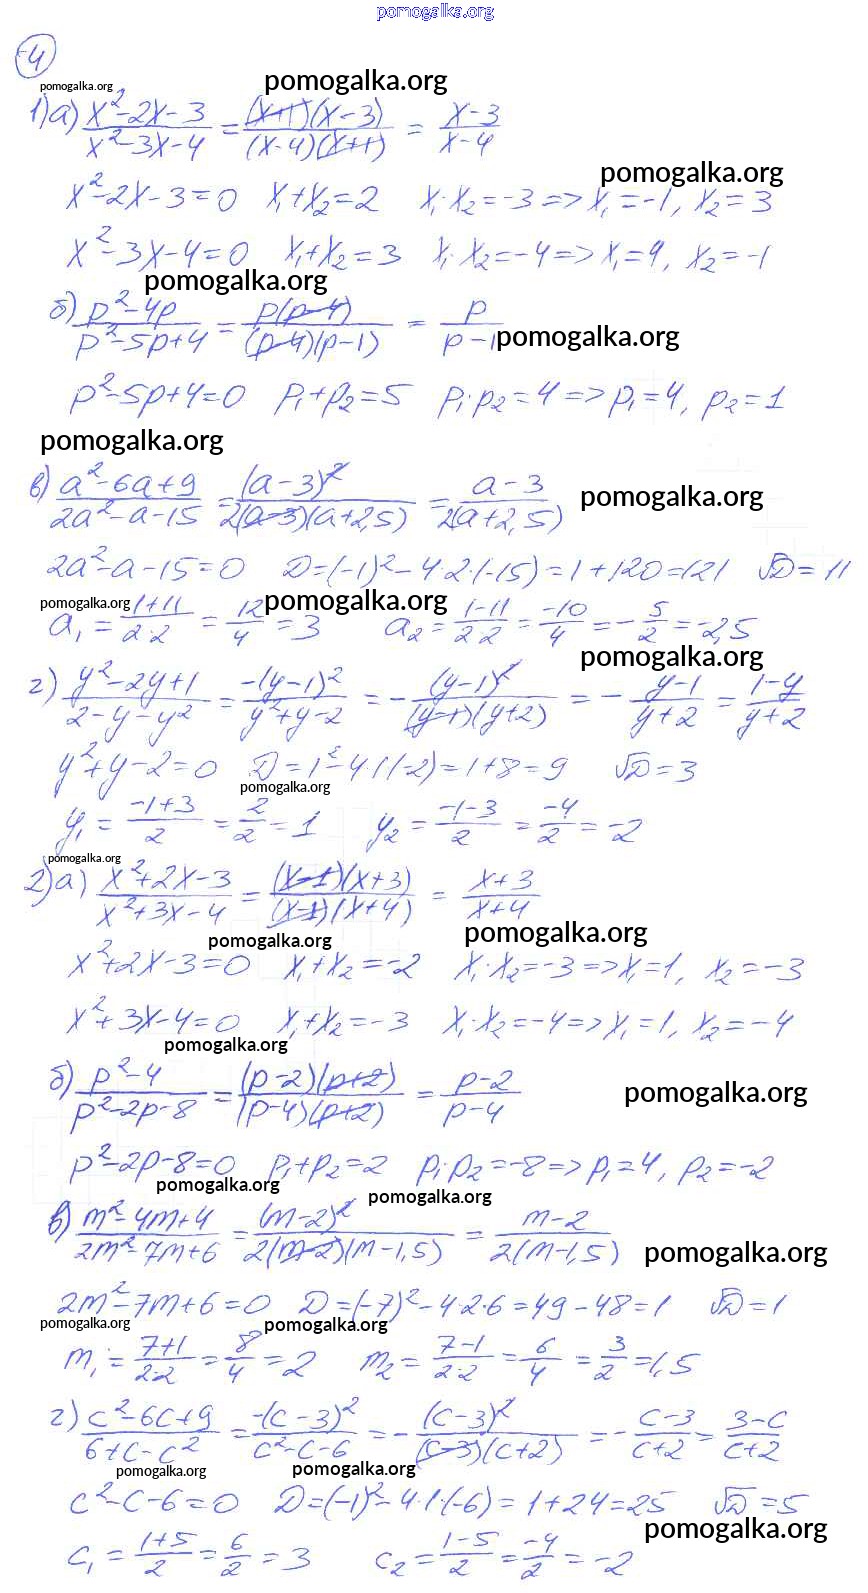 pomogalka.org
4
pomogalka.org pomogalka.org
1) а) (x²-2x-3)/(x²-3x-4) = ((x+1)(x-3))/((x-4)(x+1)) = (x-3)/(x-4)
pomogalka.org
x²-2x-3=0 x₁+x₂=2 x₁·x₂=-3 => x₁=-1, x₂=3
x²-3x-4=0 x₁+x₂=3 x₁·x₂=-4 => x₁=4, x₂=-1
pomogalka.org
б) (p²-4p)/(p²-5p+4) = (p(p-4))/((p-4)(p-1)) = p/(p-1)
pomogalka.org
p²-5p+4=0 p₁+p₂=5 p₁·p₂=4 => p₁=4, p₂=1
pomogalka.org
в) (a²-6a+9)/(2a²-a-15) = (a-3)²/(2(a-3)(a+2,5)) = (a-3)/(2(a+2,5))
pomogalka.org
2a²-a-15=0 D=(-1)²-4·2·(-15)=1+120=121 √D=11
pomogalka.org pomogalka.org
a₁ = (1+11)/(2·2) = 12/4 = 3 a₂ = (1-11)/(2·2) = -10/4 = -5/2 = -2,5
pomogalka.org
г) (y²-2y+1)/(2-y-y²) = -(y-1)²/(y²+y-2) = -(y-1)²/((y-1)(y+2)) = -(y-1)/(y+2) = (1-y)/(y+2)
y²+y-2=0 D=1²-4·1·(-2)=1+8=9 √D=3
pomogalka.org
y₁ = (-1+3)/2 = 2/2 = 1 y₂ = (-1-3)/2 = -4/2 = -2
pomogalka.org
2) а) (x²+2x-3)/(x²+3x-4) = ((x-1)(x+3))/((x-1)(x+4)) = (x+3)/(x+4)
pomogalka.org pomogalka.org
x²+2x-3=0 x₁+x₂=-2 x₁·x₂=-3 => x₁=1, x₂=-3
x²+3x-4=0 x₁+x₂=-3 x₁·x₂=-4 => x₁=1, x₂=-4
pomogalka.org
б) (p²-4)/(p²-2p-8) = ((p-2)(p+2))/((p-4)(p+2)) = (p-2)/(p-4)
pomogalka.org
p²-2p-8=0 p₁+p₂=2 p₁·p₂=-8 => p₁=4, p₂=-2
pomogalka.org pomogalka.org
в) (m²-4m+4)/(2m²-7m+6) = (m-2)²/(2(m-2)(m-1,5)) = (m-2)/(2(m-1,5))
pomogalka.org
2m²-7m+6=0 D=(-7)²-4·2·6=49-48=1 √D=1
pomogalka.org pomogalka.org
m₁ = (7+1)/(2·2) = 8/4 = 2 m₂ = (7-1)/(2·2) = 6/4 = 3/2 = 1,5
г) (c²-6c+9)/(6+c-c²) = -(c-3)²/(c²-c-6) = -(c-3)²/((c-3)(c+2)) = -(c-3)/(c+2) = (3-c)/(c+2)
pomogalka.org pomogalka.org
c²-c-6=0 D=(-1)²-4·1·(-6)=1+24=25 √D=5
pomogalka.org
c₁ = (1+5)/2 = 6/2 = 3 c₂ = (1-5)/2 = -4/2 = -2